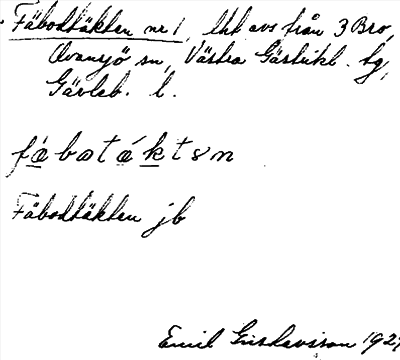 Fäbodtäkten nr 1, lht avs från 3 Bro,
Ovansjö sn, Västra Gästrikl. tg,
Gävleb. l.
fäbotäktən
Fäbodtäkten jb
Emil Gustavsson 1927